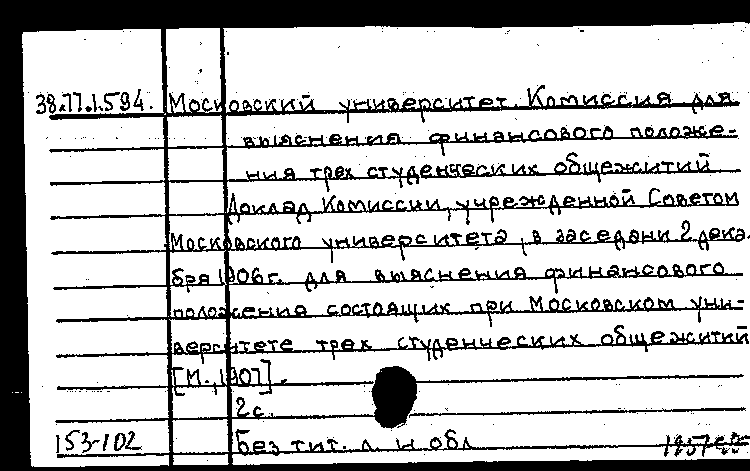 38.77.1.594. Московский университет. Комиссия для
выяснения финансового положе-
ния трех студенческих общежитий
Доклад Комиссии, учрежденной Советом
Московского университета, в заседани 2 дека-
бря 1906 г. для выяснения финансового
положения состоящих при Московском уни-
верситете трех студенческих общежитий
[М., 1907].
2 с.
153-102 Без тит. л. и обл